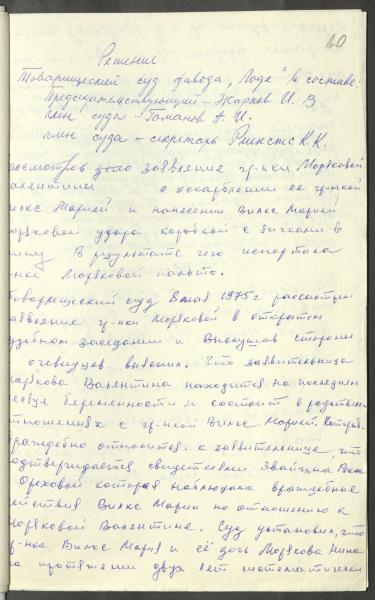 10
Решение
Товарищеский суд завода „Лоде" в составе:
Председательствующий – Жарков И. В
член суда – Томанов А. И.
член суда – секретарь Риекстс К. К.
рассмотрев дело заявление гр-ки Моряковой
алентины о оскарблении её гр-кой
илкс Марией и нанесении Вилкс Марией
оряковой удара коробкой с яйцами в
В результате чего испортила
Моряковой пальто.
Товарищеский суд 8 мая 1975 г рассмотрел
аявление гр-ки Моряковой в открытом
удебном заседании и Выслушав стороны
очевидцев выяснил. Что заявительница
Морякова Валентина находится на последнем
месяце беременности и состоит в родствен
тношениях с гр-кой Вилкс Марией. Которая
враждебно относится к заявительнице, что
одтверждается свидетелями
Ореховой которая наблюдала враждебные
ействия Вилкс Марии по отношению к
Моряковой Валентине. Суд установил, что
гр-нка Вилкс Мария и её дочь Морякова Нина
на протяжении двух лет систематически